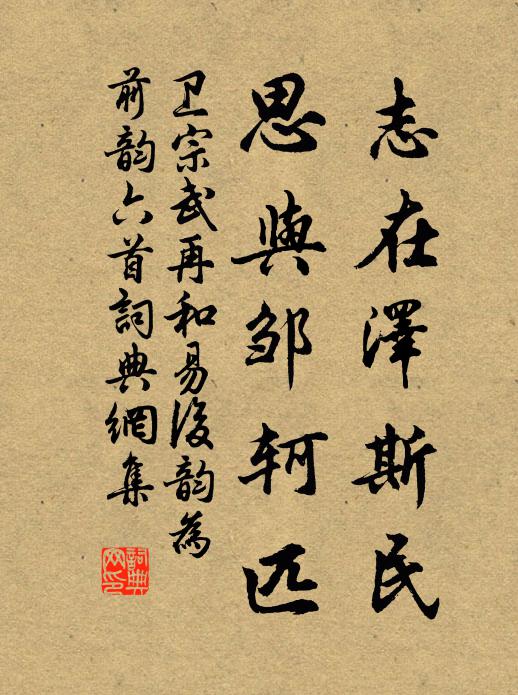 志在澤斯民
思與邹轲匹
卫宗武再和易後韵為
前韵六首詞典網集
詞典
网印